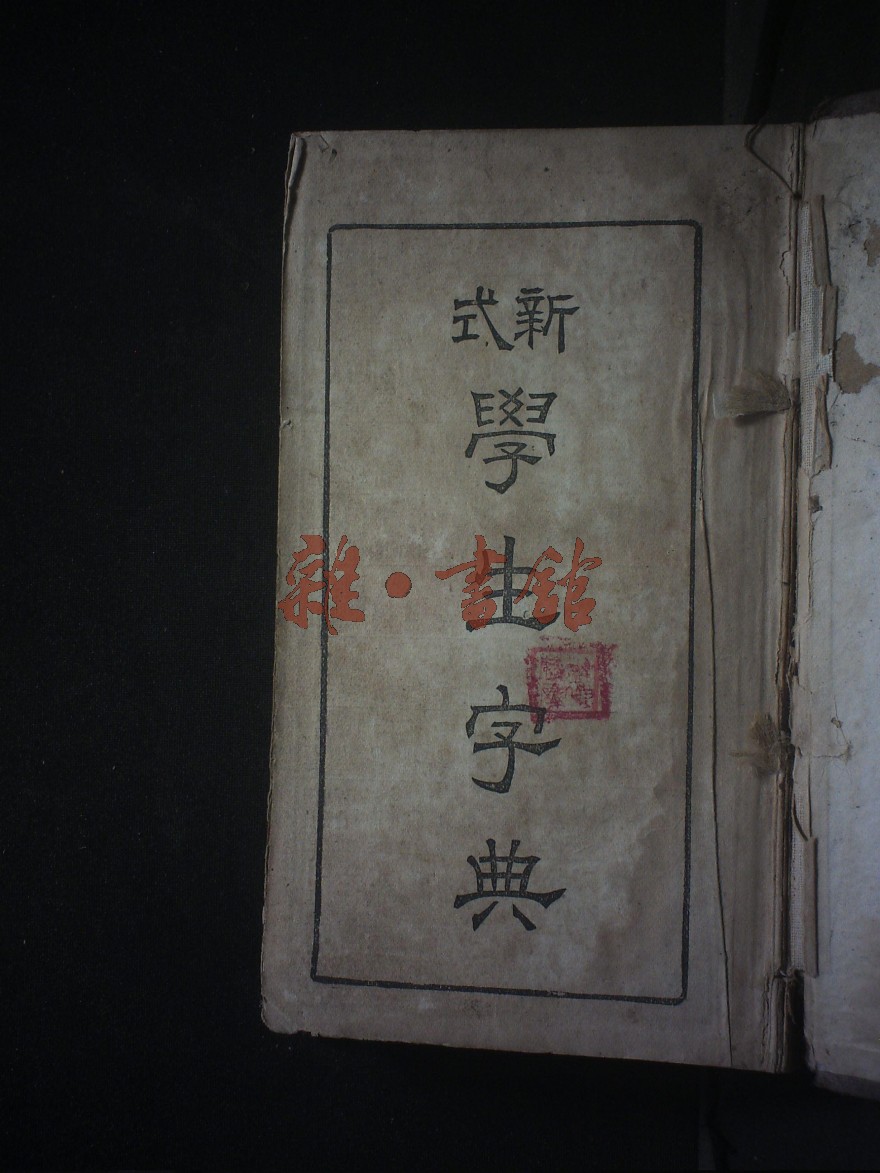 新式
學生字典
雜·書館